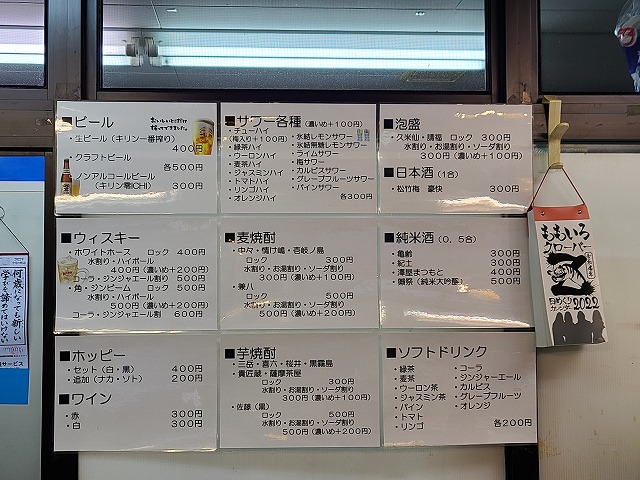 ■ビール
おいしいとこだけ
搾ってできました。
・生ビール（キリン一番搾り）
400円
・クラフトビール
各500円
・ノンアルコールビール
（キリン零ICHI） 300円
■サワー各種（濃いめ＋100円）
・チューハイ
（梅入り＋100円）
・緑茶ハイ
・ウーロンハイ
・麦茶ハイ
・ジャスミンハイ
・トマトハイ
・リンゴハイ
・オレンジハイ
・氷結レモンサワー
・氷結無糖レモンサワー
・ライムサワー
・梅サワー
・カルピスサワー
・グレープフルーツサワー
・パインサワー
各300円
■泡盛
・久米仙・請福 ロック 300円
水割り・お湯割り・ソーダ割り
300円（濃いめ＋100円）
■日本酒（1合）
・松竹梅 豪快 300円
■ウィスキー
・ホワイトホース ロック 400円
水割り・ハイボール
400円（濃いめ＋200円）
コーラ・ジンジャエール割 500円
・角・ジンビーム ロック 500円
水割り・ハイボール
500円（濃いめ＋200円）
コーラ・ジンジャエール割 600円
■麦焼酎
・中々・情け嶋・壱岐ノ島
ロック 300円
水割り・お湯割り・ソーダ割り
300円（濃いめ＋100円）
・兼八
ロック 500円
水割り・お湯割り・ソーダ割り
500円（濃いめ＋200円）
■純米酒（0.5合）
・亀齢 300円
・紀土 300円
・澤屋まつもと 400円
・獺祭（純米大吟醸） 500円
■ホッピー
・セット（白・黒） 400円
・追加（ナカ・ソト） 200円
■ワイン
・赤 300円
・白 300円
■芋焼酎
・三岳・喜六・桜井・黒霧島
・貴匠蔵・薩摩茶屋
ロック 300円
水割り・お湯割り・ソーダ割り
300円（濃いめ＋100円）
・佐藤（黒）
ロック 500円
水割り・お湯割り・ソーダ割り
500円（濃いめ＋200円）
■ソフトドリンク
・緑茶
・麦茶
・ウーロン茶
・ジャスミン茶
・パイン
・トマト
・リンゴ
・コーラ
・ジンジャーエール
・カルピス
・グレープフルーツ
・オレンジ
各200円
ももいろ
クローバー
日めくり
カレンダー
2022
何歳になっても新しい
学びを諦めてはいけない
サービス